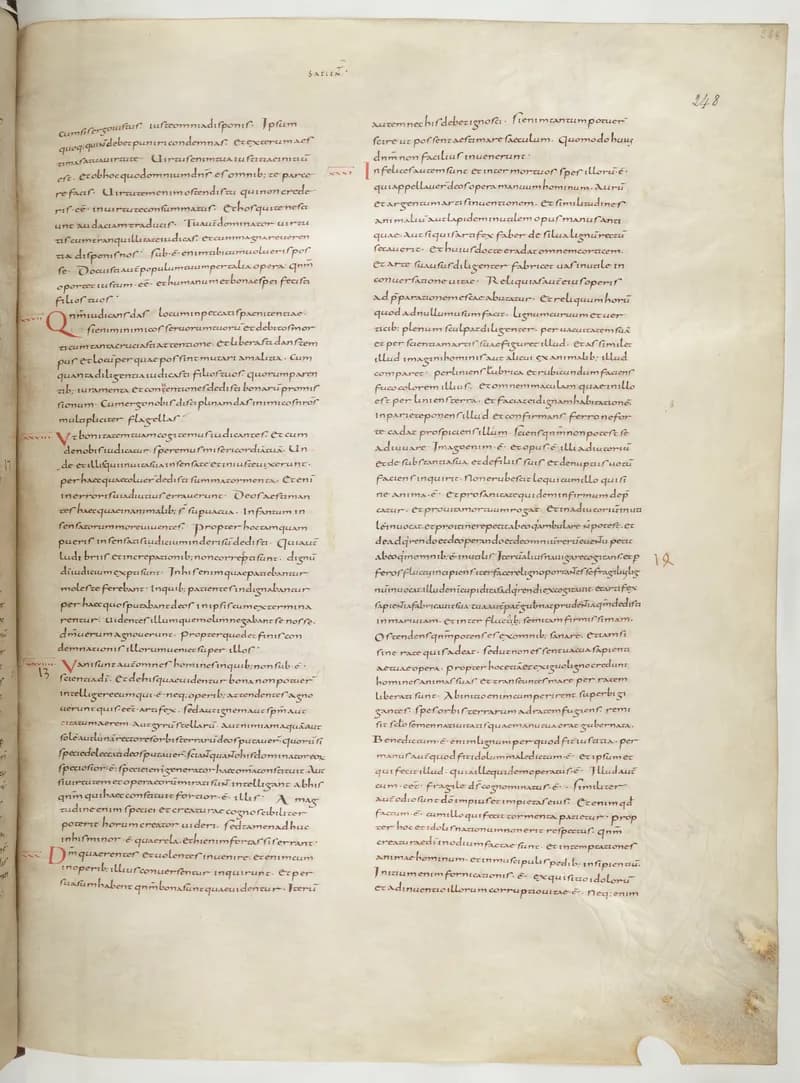 SAPIEN̄
248
cum sis ergo iustus iuste omnia disponis. Ipsum
quoq; qui nōn debet puniri condemnas. Et exterum aes
timas a tua uirtute. Uirtus enim tua iustitiae initiū
est. Et ob hoc quod omnium dn̄s es omnib; te parce
re facis. Uirtutem enim ostendis tu qui non crede
ris eē in uirtute consummatus. Et hos qui te nesci
unt audaciam traducis. Tu aut̄ dominator uirtu
tis cum tranquillitate iudicas. Et cum magna reueren
tia disponis nos. Sub ē enim tibi cum uolueris pos
se. Docuisti aut̄ populum tuum per talia opera. qn̄m
oportet iustum eē et humanum et bonae spei fecisti
filios tuos.
XXVII Qn̄m iudicans das locum in peccatis paenitentiae.
Si enim inimicos seruorum tuorū et debitos mor
ti cum tanta cruciasti attentione. Et liberasti dans tem
pus et locū per quae possint mutari a malitia. Cum
quanta diligentia iudicasti filios tuos quorum paren
tib; iuramenta et conuentiones dedisti bonarū promis
sionum. Cum ergo nobis disciplinam das inimicos nr̄os
multipliciter flagellas.
XXVIII Ut bonitatem tuam cogitemus iudicantes. Et cum
de nobis iudicatur speremus misericordiā tuā. Un
de et illis qui in uita sua insensate et iniuste uixerunt.
per haec quae coluer̄ dedisti summa tormenta. Etenī
in erroris uia diutius errauerunt. Deos aestiman
tes haec quae in animalib; s̄ superuacua. Infantum in
sensatorum more uiuentes. Propter hoc tamquam
pueris insensatis iudicium in derisū dedisti. Qui aut̄
ludibriis et increpationib; non correpti sunt. dignū
dī iudicium experti sunt. In his enim quae patiebantur
moleste ferebant. In quib; patientes indignabantur
per haec quos putabant deos in ipsis cum extermina
rentur. Uidentes illum quem olim negabant se nosse.
dm̄ uerum agnouerunt. Propter quod et finis con
demnationis illorum uenit super illos.
XXVIIII
13
Uani sunt aut̄ omnes homines in quib; non sub ē
scientia dī. Et de his quae uidentur bona non potuer̄
intellegere eum qui ē. neq; operib; attendentes agno
uerunt quis eēt artifex. Sed aut ignem aut spm̄ aut
citatum aerem. Aut gyrū stellarū. Aut nimiam aquā aut
solē aut lunā rectores orbis terrarū deos putauer̄. quorū si
specie delectati deos putauer̄. sciant quanto his dominator eoȝ
speciosior ē. speciei enī generator haec omīa constituit. Aut
si uirtutem et opera eorū mirati sunt. intellegant ab his
qn̄m qui haec constituit fortior ē illis. A mag
tudine enim speciei et creaturae cognoscibiliter
poterit horum creator uideri. Sed tamen adhuc
in his minor ē querela. Et hi enim fortassis errant.
XXX Dm̄ quaerentes et uolentes inuenire. Etenim cum
in operib; illius conuersentur inquirunt. Et per
suasum habent qn̄m bona sunt quae uidentur. Iterū
autem nec his debet ignosci. Si enim tantum potuer̄
scire ut possent aestimare saeculum. Quomodo huiꝰ
dnm̄ non facilius inuenerunt.
XXXI Infelices autem sunt et inter mortuos spes illorū ē.
qui appellauer̄ deos opera manuum hominum. Aurū
et argentum artis inuentionem. Et similitudines
animaliū. aut lapidem inutilem opus manus anti
quae. Aut si quis artifex faber de silua lignū rectū
secauerit. Et huius docte eradat omnem corticem.
Et arte sua usus diligenter fabricet uas inutile in
conuersatione uitae. Reliquis aut̄ eius operis
ad p̄parationem escae abutatur. Et reliquum horū
quod ad nullum usum facit. Lignum curuum et uer
ticib; plenum sculpat diligenter. per uacuitatem suā
et per scientiam artis suae figuret illud. Et assimilet
illud imagini hominis aut alicui ex animalib; illud
comparet. perliniens rubrica et rubicundum faciens
fuco colorem illius. Et omnem maculam quae in illo
est perliniens terra. Et faciat ei dignam habitationē.
In pariete ponens illud et confirmans ferro ne for
te cadat prospiciens illum. Sciens qn̄m non potest se
adiuuare. Imago enim ē. et opus ē illi adiutoriū
et de substantia sua et de filiis suis et de nuptiis uotū
faciens inquirit. Non erubescit loqui cum illo qui si
ne anima ē. Et pro sanitate quidem infirmum dep̄
catur. Et pro uita mortuum rogat. Et in adiutoriū inuti
lē inuocat. et pro itinere petit ab eo q ambulare n̄ potest. et
de adq̄rendo et de operando et de omniū rerū euentu petit
ab eo q in omnib; ē inutilis. Iterū alius nauigare cogitans. et p
feros fluctus iter facere incipiens ligno portantē se fragilius lig
nū inuocat. Illud enī cupiditas adq̄rendi excogitauit. et artifex
sapientia fabricauit sua. tua aut̄ pat̄ gubernat prudentia. qm̄ dedisti
in mari uiam. et inter fluctus semitam firmissimam.
Ostendens qn̄m potens es ex omnib; sanare. Etiamsi
sine rate quis adeat. Sed ut non essent uacua sapientia
aetuae opera. propter hoc etiā et exiguo ligno credunt
homines animas suas. Et transeuntes mare per ratem
liberati sunt. Ab initio enim cum perirent superbi gi
gantes. Spes orbis terrarum ad ratem fugiens. remi
sit sclo semen natiuitatis quae manu tua erat gubernata.
Benedictum ē enim lignum per quod fit iustitia. per
manus aut̄ quod fit idolum maledictum ē. et ipsum et
qui fecit illud. quia ille quidem operatus ē. Illud aut̄
cum eēt fragile dī cognominatus ē. Similiter
aut̄ odio sunt dō impius et impietas eius. Etenim qd̄
factum ē. cum illo qui fecit tormenta patietur. prop
ter hoc et idolis nationum non erit respectus. qn̄m
creaturae dī in odium factae sunt. et in temptationes
animae hominum. et in muscipulis pedib; insipientiū.
Initium enim fornicationis ē. exquisitio idolorū
et adinuentio illorum corruptio uitae ē. Neq; enim